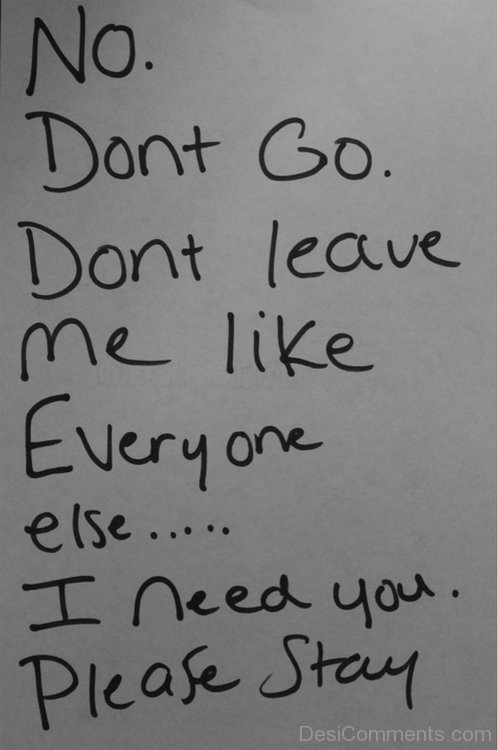 No.
Dont Go.
Dont leave
me like
Everyone
else.....
I need you.
Please Stay
DesiComments.com